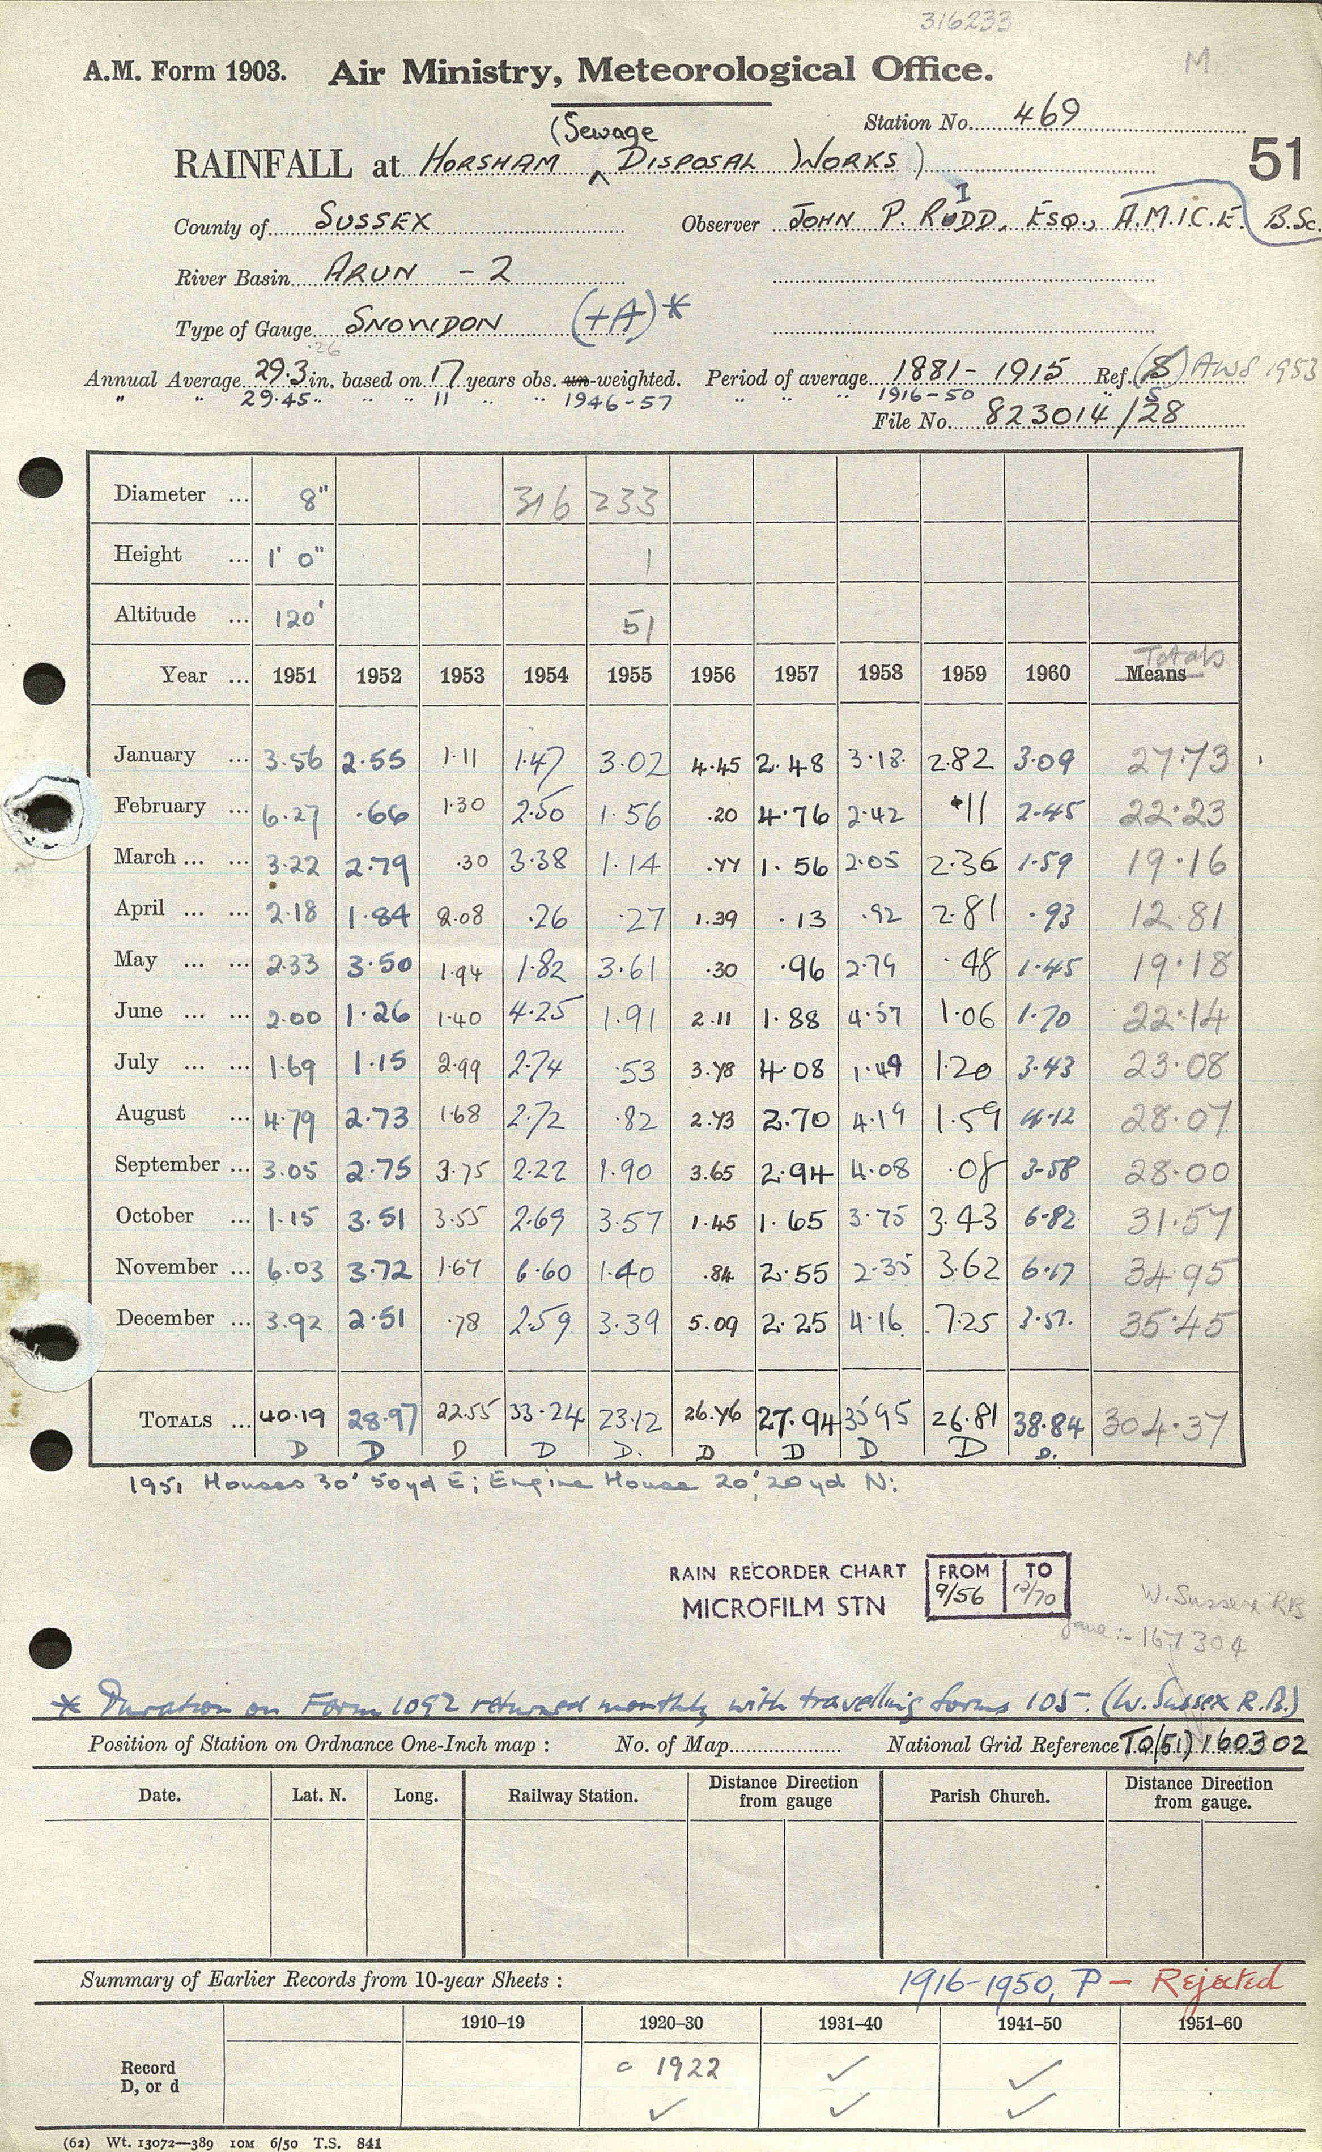 316233
M
A.M. Form 1903. Air Ministry, Meteorological Office.
Station No. 469
51
(Sewage
RAINFALL at HORSHAM ^ DISPOSAL WORKS)
County of SUSSEX Observer JOHN P. RUDD, ESQ., A.M.I.C.E. B.Sc.
I
River Basin ARUN - 2
Type of Gauge SNOWDON (+A)*
.26
Annual Average 29.3 in. based on 17 years obs. un-weighted. Period of average 1881-1915 Ref. (S) AWS 1953
" " 29.45 " " " 11 " " 1946-57 " " " 1916-50 " S
File No. 823014/28
Diameter ... 8" 316 233
Height ... 1' 0" 1
Altitude ... 120' 51
Totals
Year ... 1951 1952 1953 1954 1955 1956 1957 1958 1959 1960 Means
January ... 3.56 2.55 1.11 1.47 3.02 4.45 2.48 3.18 2.82 3.09 27.73
February ... 6.27 .66 1.30 2.50 1.56 .20 4.76 2.42 .11 2.45 22.23
March ... ... 3.22 2.79 .30 3.38 1.14 .77 1.56 2.05 2.36 1.59 19.16
April ... ... 2.18 1.84 2.08 .26 .27 1.39 .13 .92 2.81 .93 12.81
May ... ... 2.33 3.50 1.94 1.82 3.61 .30 .96 2.79 .48 1.45 19.18
June ... ... 2.00 1.26 1.40 4.25 1.91 2.11 1.88 4.57 1.06 1.70 22.14
July ... ... 1.69 1.15 2.99 2.74 .53 3.78 4.08 1.49 1.20 3.43 23.08
August ... 4.79 2.73 1.68 2.72 .82 2.73 2.70 4.19 1.59 4.12 28.07
September ... 3.05 2.75 3.75 2.22 1.90 3.65 2.94 4.08 .08 3.58 28.00
October ... 1.15 3.51 3.55 2.69 3.57 1.45 1.65 3.75 3.43 6.82 31.57
November ... 6.03 3.72 1.67 6.60 1.40 .84 2.55 2.35 3.62 6.17 34.95
December ... 3.92 2.51 .78 2.59 3.39 5.09 2.25 4.16 7.25 3.51 35.45
TOTALS ... 40.19 28.97 22.55 33.24 23.12 26.76 27.94 35.95 26.81 38.84 304.37
D D D D D. D D D D D.
1951 Houses 30' 50yd E; Engine House 20', 20yd N:
RAIN RECORDER CHART FROM TO
MICROFILM STN 9/56 12/70
W. Sussex RB
gave :- 167304
* Duration on Form 1092 returned monthly with travelling forms 105. (W. Sussex R.B.)
Position of Station on Ordnance One-Inch map : No. of Map National Grid Reference TQ(51)160302
Date. Lat. N. Long. Railway Station. Distance Direction from gauge Parish Church. Distance Direction from gauge.
Summary of Earlier Records from 10-year Sheets : 1916-1950, P - Rejected
1910–19 1920–30 1931–40 1941–50 1951–60
Record c 1922 ✓ ✓
D, or d ✓ ✓ ✓
(62) Wt. 13072—389 10M 6/50 T.S. 841